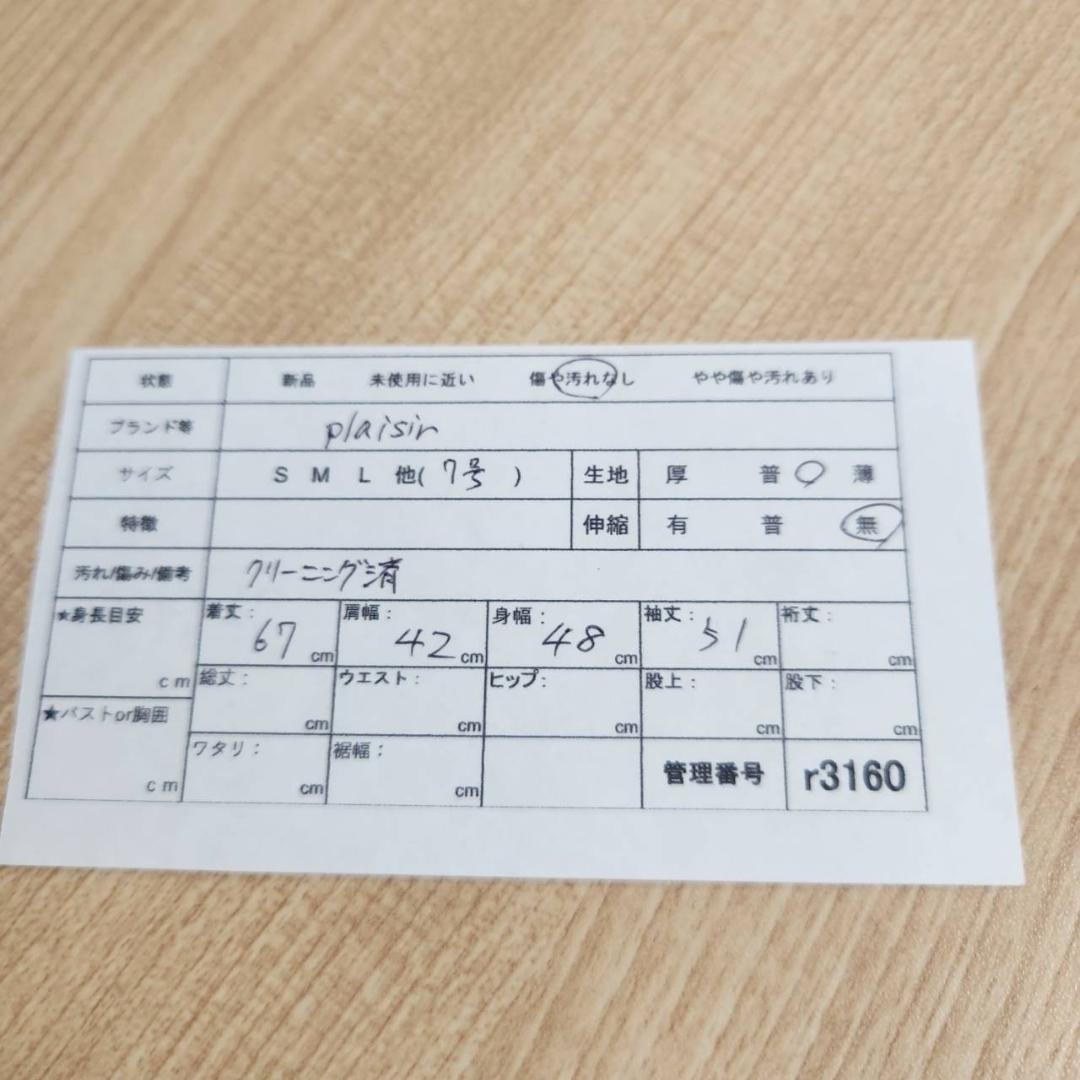 状態 新品 未使用に近い 傷や汚れなし やや傷や汚れあり
ブランド等 plaisir
サイズ S M L 他( 7号 ) 生地 厚 普 薄
特徴 伸縮 有 普 無
汚れ/傷み/備考 クリーニング済
★身長目安 cm 着丈: 67 cm 肩幅: 42 cm 身幅: 48 cm 袖丈: 51 cm 裄丈: cm
総丈: cm ウエスト: cm ヒップ: cm 股上: cm 股下: cm
★バストor胸囲 cm ワタリ: cm 裾幅: cm 管理番号 r3160